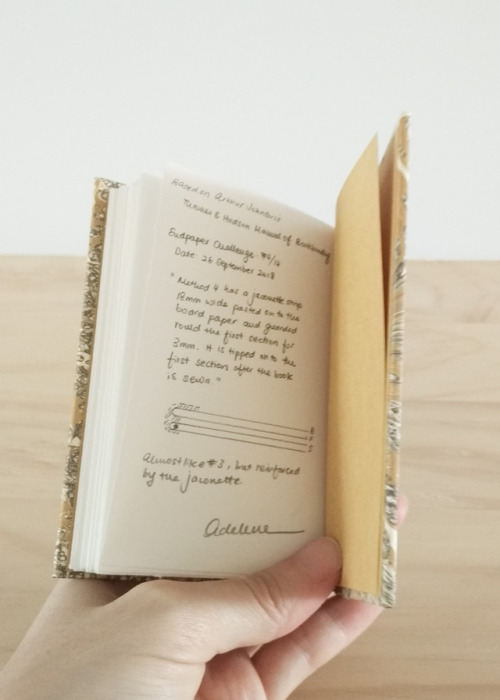 Based on Arthur Johnson's
Thames & Hudson Manual of Bookbinding
Endpaper Challenge #4/16
Date: 26 September 2018
"Method 4 has a jaconette strip
12mm wide pasted on to the
board paper and guarded
round the first section for
3mm. It is tipped on to the
first section after the book
is sewn."
Almost like #3, but reinforced
by the jaconette.
Adelene